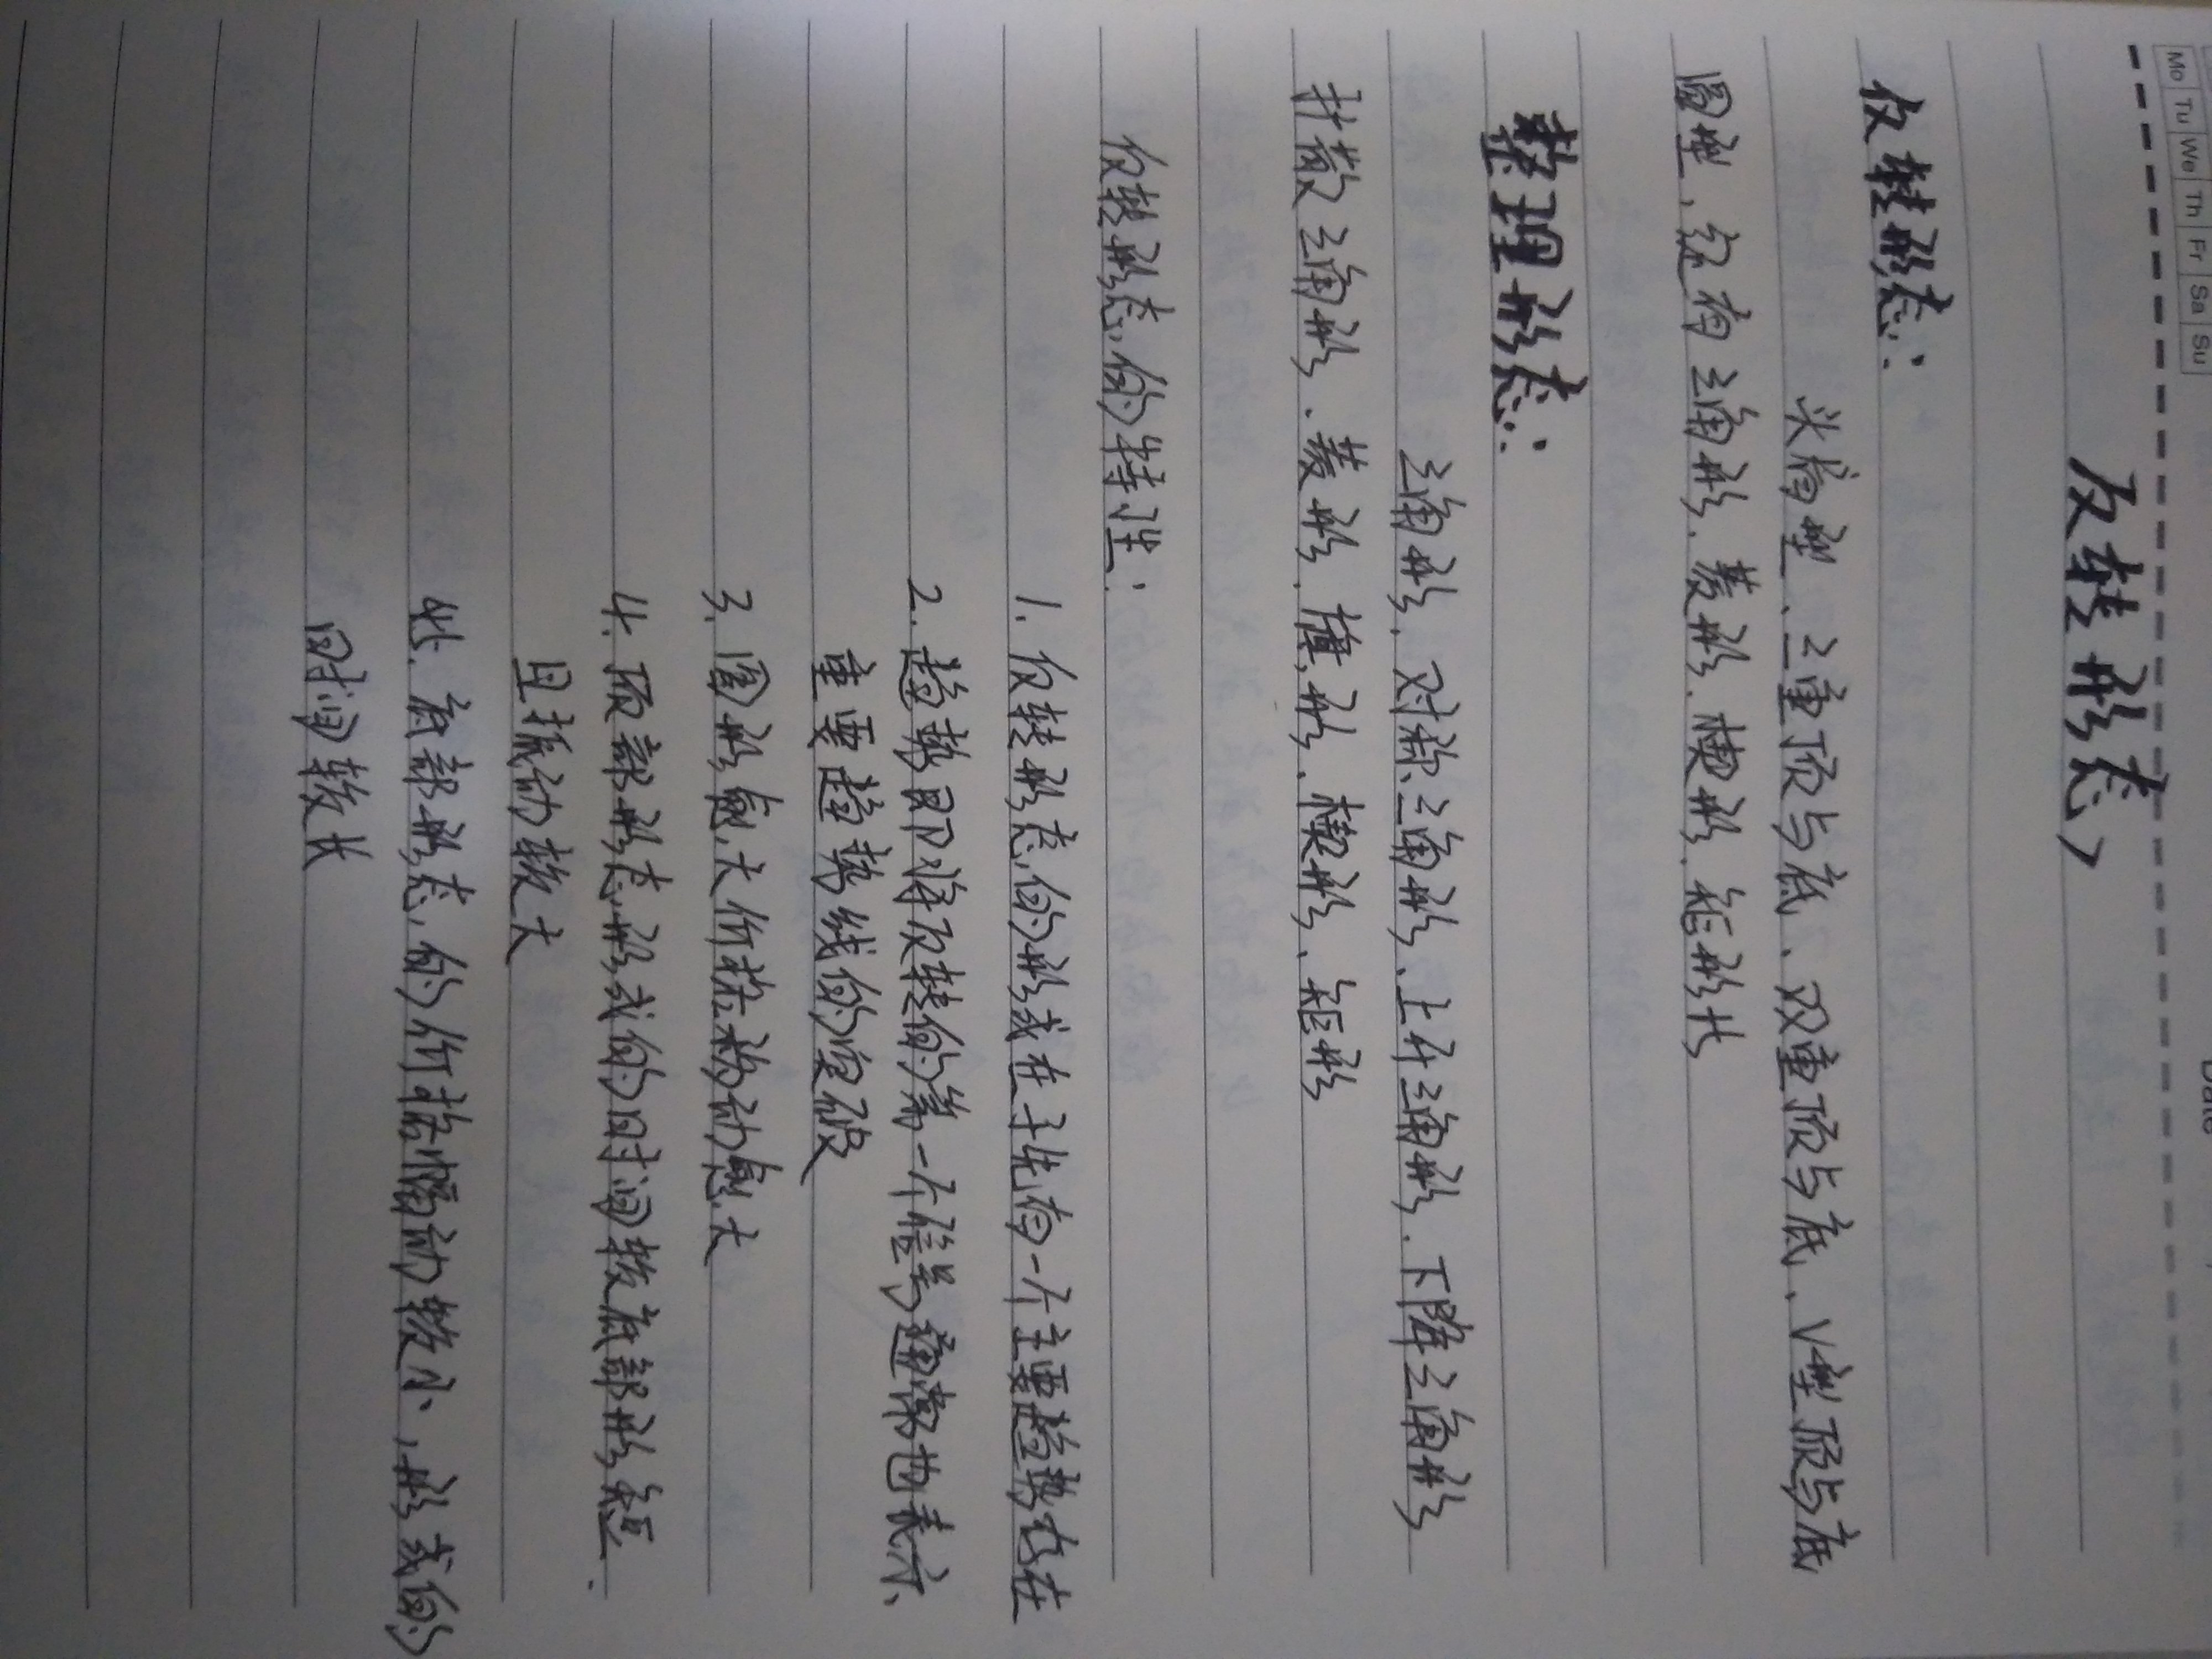 Mo Tu We Th Fr Sa Su
Date
反转形态
反转形态:
头肩型、三重顶与底、双重顶与底、V型顶与底
圆型,还有三角形、菱形、楔形、矩形片
整理形态:
三角形、对称三角形、上升三角形、下降三角形
扩散三角形、菱形、旗形、楔形、矩形
反转形态的特性:
1. 反转形态的形成在于先有一个主要趋势存在
2. 趋势即将反转的第一个信号通常也表示
重要趋势线的突破
3. 图形愈大价格移动愈大
4. 顶部形态形成的时间较底部形短.
且振动较大
5. 底部形态的价格幅动较小,形成的
时间较长